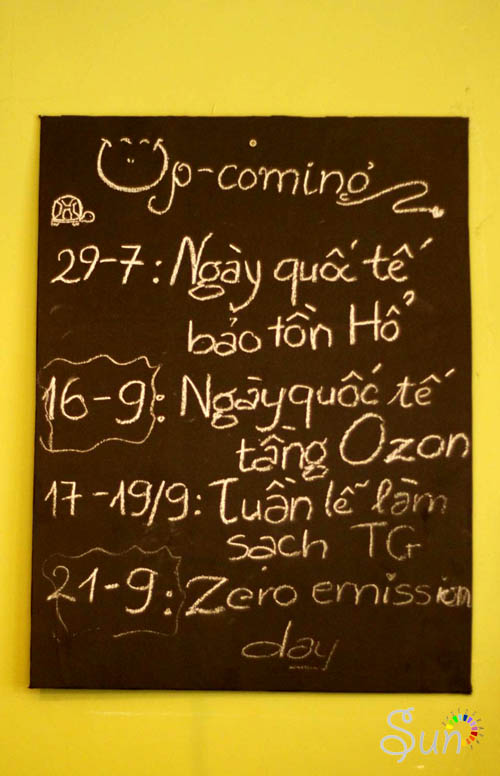 Up-coming
29-7: Ngày quốc tế
bảo tồn Hổ
16-9: Ngày quốc tế
tầng Ozon
17-19/9: Tuần lễ làm
sạch TG
21-9: Zero emission
day
Sun